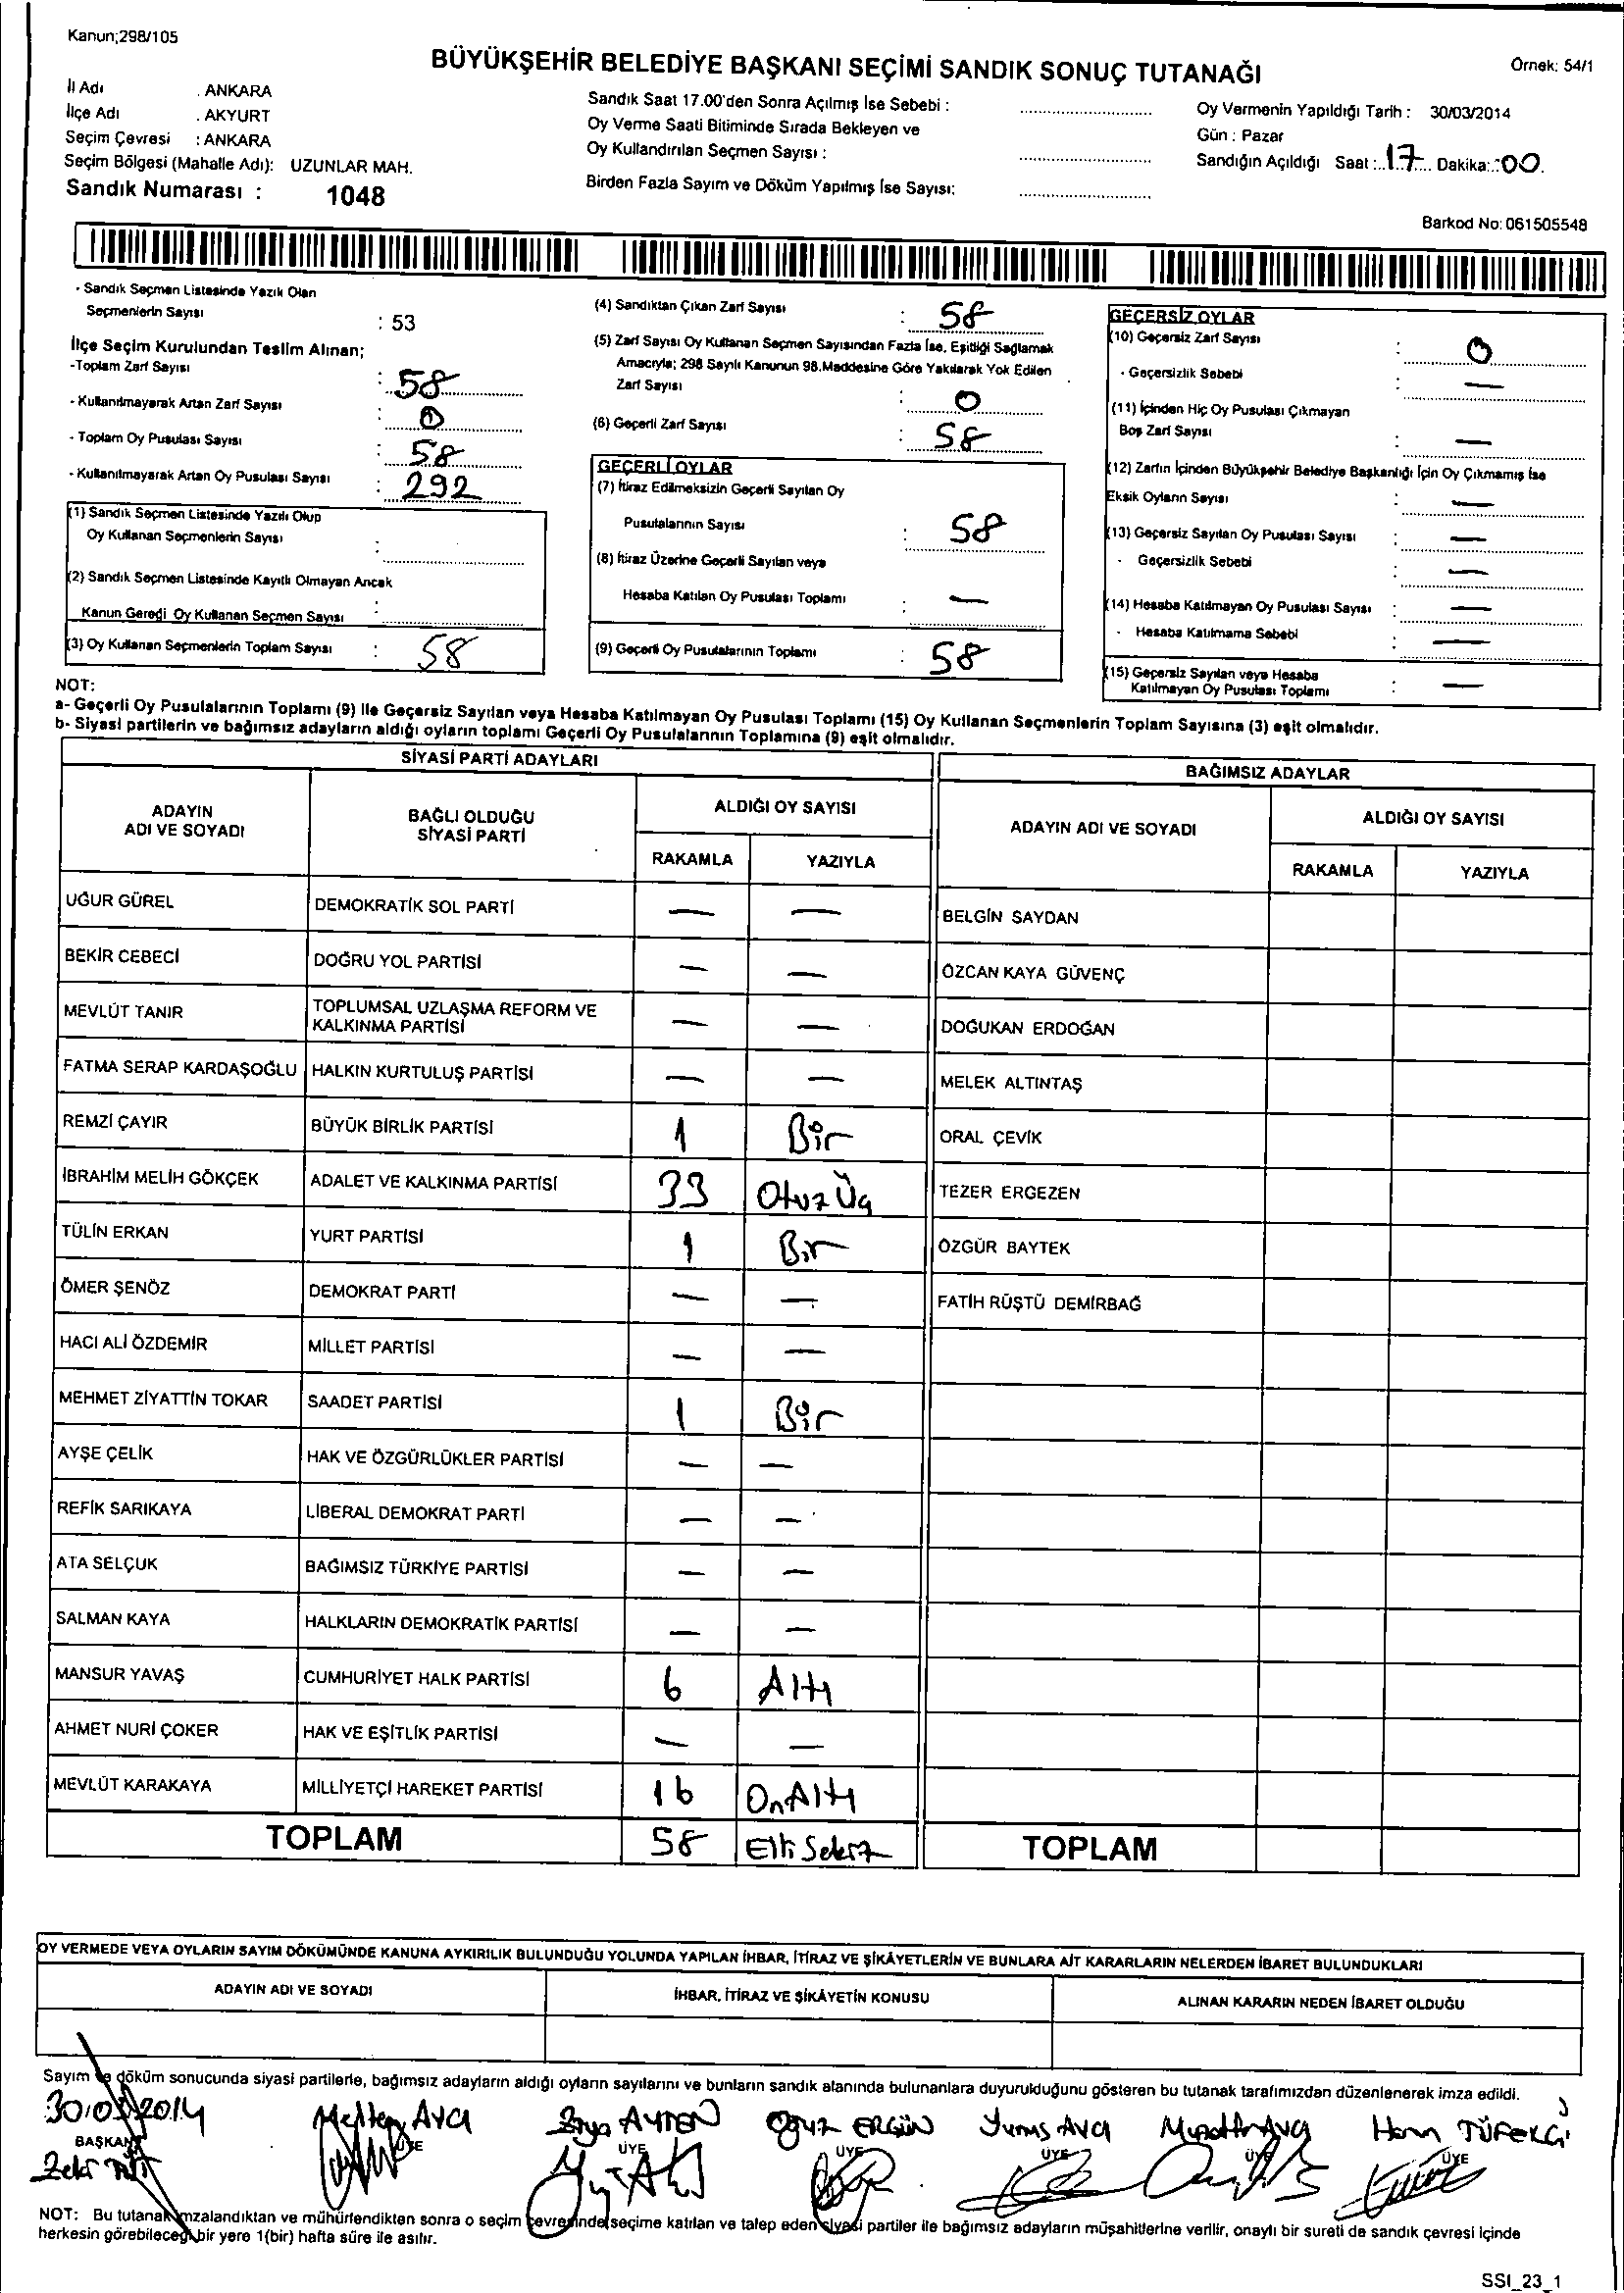 Kanun;298/105
BÜYÜKŞEHİR BELEDİYE BAŞKANI SEÇİMİ SANDIK SONUÇ TUTANAĞI
Örnek: 54/1
İl Adı : ANKARA
İlçe Adı : AKYURT
Seçim Çevresi : ANKARA
Seçim Bölgesi (Mahalle Adı): UZUNLAR MAH.
Sandık Numarası : 1048
Sandık Saat 17.00'den Sonra Açılmış İse Sebebi :
Oy Verme Saati Bitiminde Sırada Bekleyen ve
Oy Kullandırılan Seçmen Sayısı :
Birden Fazla Sayım ve Döküm Yapılmış İse Sayısı:
Oy Vermenin Yapıldığı Tarih : 30/03/2014
Gün : Pazar
Sandığın Açıldığı Saat : 17 Dakika: 00
Barkod No: 061505548
- Sandık Seçmen Listesinde Yazılı Olan
Seçmenlerin Sayısı : 53
İlçe Seçim Kurulundan Teslim Alınan;
-Toplam Zarf Sayısı : 58
- Kullanılmayarak Artan Zarf Sayısı : 0
- Toplam Oy Pusulası Sayısı : 58
- Kullanılmayarak Artan Oy Pusulası Sayısı : 292
(1) Sandık Seçmen Listesinde Yazılı Olup
Oy Kullanan Seçmenlerin Sayısı :
(2) Sandık Seçmen Listesinde Kayıtlı Olmayan Ancak
Kanun Gereği Oy Kullanan Seçmen Sayısı :
(3) Oy Kullanan Seçmenlerin Toplam Sayısı : 58
(4) Sandıktan Çıkan Zarf Sayısı : 58
(5) Zarf Sayısı Oy Kullanan Seçmen Sayısından Fazla İse, Eşitliği Sağlamak
Amacıyla; 298 Sayılı Kanunun 98.Maddesine Göre Yakılarak Yok Edilen
Zarf Sayısı : 0
(6) Geçerli Zarf Sayısı : 58
GEÇERLİ OYLAR
(7) İtiraz Edilmeksizin Geçerli Sayılan Oy
Pusulalarının Sayısı : 58
(8) İtiraz Üzerine Geçerli Sayılan veya
Hesaba Katılan Oy Pusulası Toplamı : —
(9) Geçerli Oy Pusulalarının Toplamı : 58
GEÇERSİZ OYLAR
(10) Geçersiz Zarf Sayısı : 0
- Geçersizlik Sebebi : —
(11) İçinden Hiç Oy Pusulası Çıkmayan
Boş Zarf Sayısı : —
(12) Zarfın İçinden Büyükşehir Belediye Başkanlığı İçin Oy Çıkmamış İse
Eksik Oyların Sayısı : —
(13) Geçersiz Sayılan Oy Pusulası Sayısı : —
- Geçersizlik Sebebi : —
(14) Hesaba Katılmayan Oy Pusulası Sayısı : —
- Hesaba Katılmama Sebebi : —
(15) Geçersiz Sayılan veya Hesaba
Katılmayan Oy Pusulası Toplamı : —
NOT:
a- Geçerli Oy Pusulalarının Toplamı (9) İle Geçersiz Sayılan veya Hesaba Katılmayan Oy Pusulası Toplamı (15) Oy Kullanan Seçmenlerin Toplam Sayısına (3) eşit olmalıdır.
b- Siyasi partilerin ve bağımsız adayların aldığı oyların toplamı Geçerli Oy Pusulalarının Toplamına (9) eşit olmalıdır.
SİYASİ PARTİ ADAYLARI
ADAYIN ADI VE SOYADI
BAĞLI OLDUĞU SİYASİ PARTİ
ALDIĞI OY SAYISI
RAKAMLA YAZIYLA
UĞUR GÜREL DEMOKRATİK SOL PARTİ — —
BEKİR CEBECİ DOĞRU YOL PARTİSİ — —
MEVLÜT TANIR TOPLUMSAL UZLAŞMA REFORM VE KALKINMA PARTİSİ — —
FATMA SERAP KARDAŞOĞLU HALKIN KURTULUŞ PARTİSİ — —
REMZİ ÇAYIR BÜYÜK BİRLİK PARTİSİ 1 Bir
İBRAHİM MELİH GÖKÇEK ADALET VE KALKINMA PARTİSİ 33 Otuz Üç
TÜLİN ERKAN YURT PARTİSİ 1 Bir
ÖMER ŞENÖZ DEMOKRAT PARTİ — —
HACI ALİ ÖZDEMİR MİLLET PARTİSİ — —
MEHMET ZİYATTİN TOKAR SAADET PARTİSİ 1 Bir
AYŞE ÇELİK HAK VE ÖZGÜRLÜKLER PARTİSİ — —
REFİK SARIKAYA LİBERAL DEMOKRAT PARTİ — —
ATA SELÇUK BAĞIMSIZ TÜRKİYE PARTİSİ — —
SALMAN KAYA HALKLARIN DEMOKRATİK PARTİSİ — —
MANSUR YAVAŞ CUMHURİYET HALK PARTİSİ 6 Altı
AHMET NURİ ÇOKER HAK VE EŞİTLİK PARTİSİ — —
MEVLÜT KARAKAYA MİLLİYETÇİ HAREKET PARTİSİ 16 On Altı
TOPLAM 58 Elli Sekiz
BAĞIMSIZ ADAYLAR
ADAYIN ADI VE SOYADI
ALDIĞI OY SAYISI
RAKAMLA YAZIYLA
BELGİN SAYDAN
ÖZCAN KAYA GÜVENÇ
DOĞUKAN ERDOĞAN
MELEK ALTINTAŞ
ORAL ÇEVİK
TEZER ERGEZEN
ÖZGÜR BAYTEK
FATİH RÜŞTÜ DEMİRBAĞ
TOPLAM
OY VERMEDE VEYA OYLARIN SAYIM DÖKÜMÜNDE KANUNA AYKIRILIK BULUNDUĞU YOLUNDA YAPILAN İHBAR, İTİRAZ VE ŞİKÂYETLERİN VE BUNLARA AİT KARARLARIN NELERDEN İBARET BULUNDUKLARI
ADAYIN ADI VE SOYADI
İHBAR, İTİRAZ VE ŞİKÂYETİN KONUSU
ALINAN KARARIN NEDEN İBARET OLDUĞU
Sayım ve döküm sonucunda siyasi partilerle, bağımsız adayların aldığı oyların sayılarını ve bunların sandık alanında bulunanlara duyurulduğunu gösteren bu tutanak tarafımızdan düzenlenerek imza edildi.
30/03/2014
Meltem AVCI Ziya AYTEN Oğuz ERGÜN Yunus AVCI AVCI TÜFEKÇİ
BAŞKAN ÜYE ÜYE ÜYE ÜYE ÜYE ÜYE
Zeki
NOT: Bu tutanak imzalandıktan ve mühürlendikten sonra o seçim çevresinde seçime katılan ve talep eden siyasi partiler ile bağımsız adayların müşahitlerine verilir, onaylı bir sureti de sandık çevresi içinde
herkesin görebileceği bir yere 1(bir) hafta süre ile asılır.
SSI_23_1